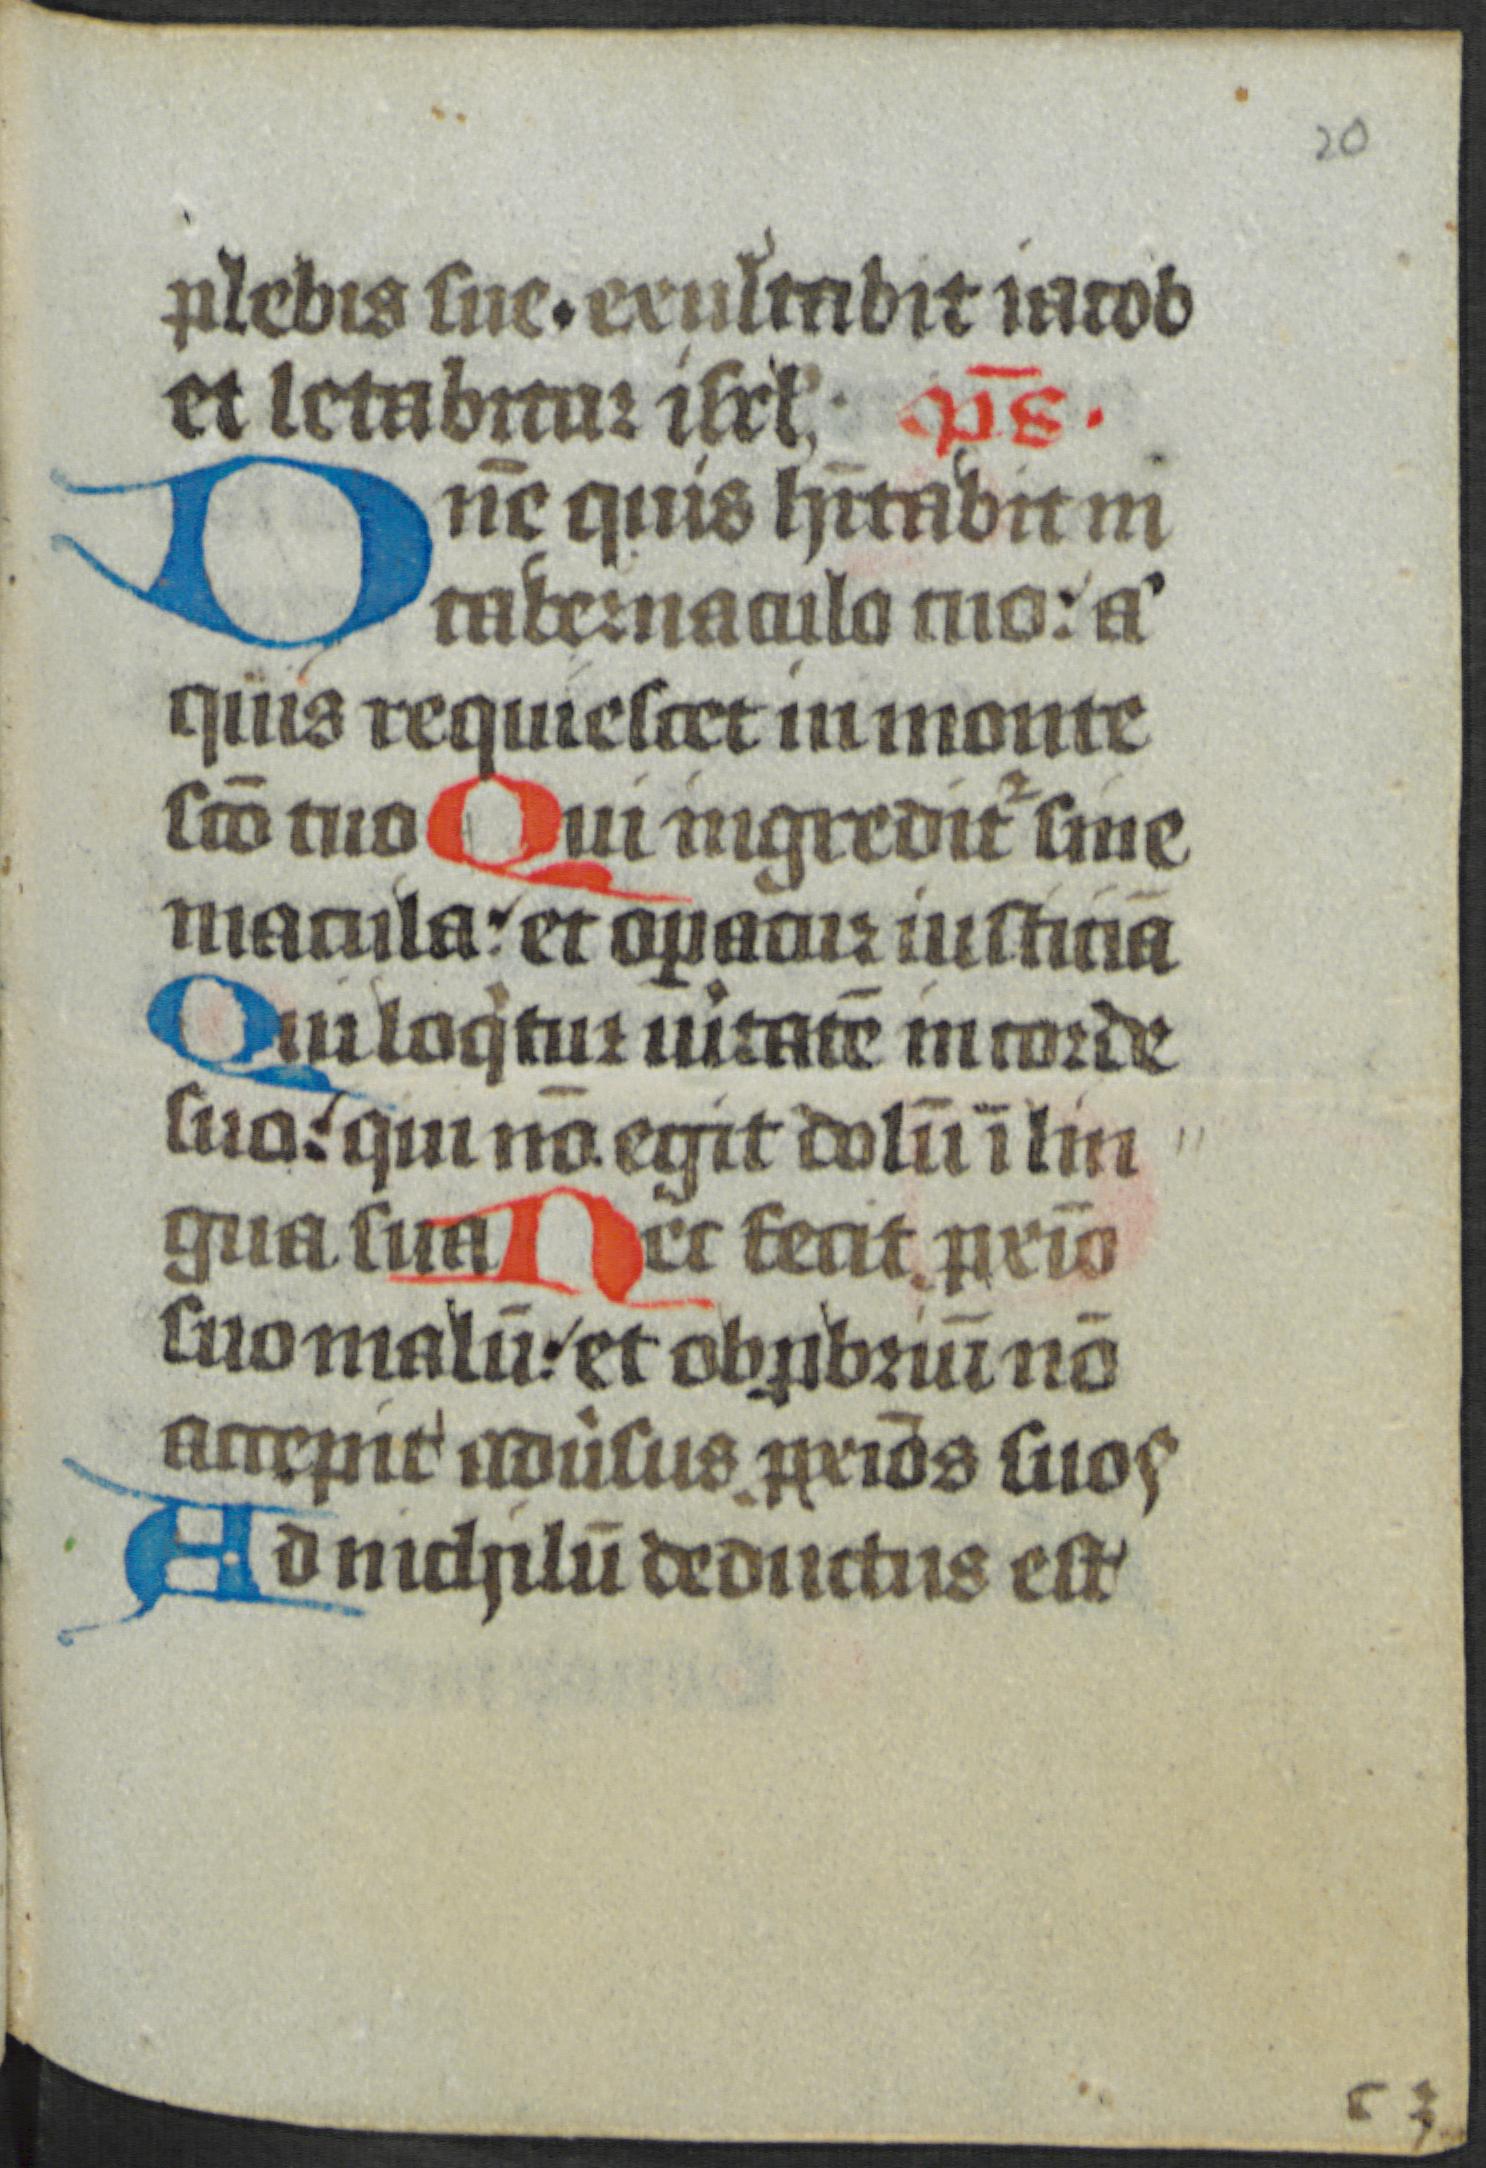 20
plebis sue. exultabit iacob
et letabitur isrl' p̄s.
Dn̄e quis hītabit in
tabernaculo tuo: a'
quis requiescet in monte
sc̄o tuo Qui ingredit᷑ sine
macula: et oꝑatur iusticiā
Qui loqͥtur uͥtatē in corde
suo: qui nō egit dolū ī lin
gua sua Nec fecit ꝓxīo
suo malū: et obꝓbriū nō
accepit aduͥsus ꝓxīos suos
Ad nichilū deductus est